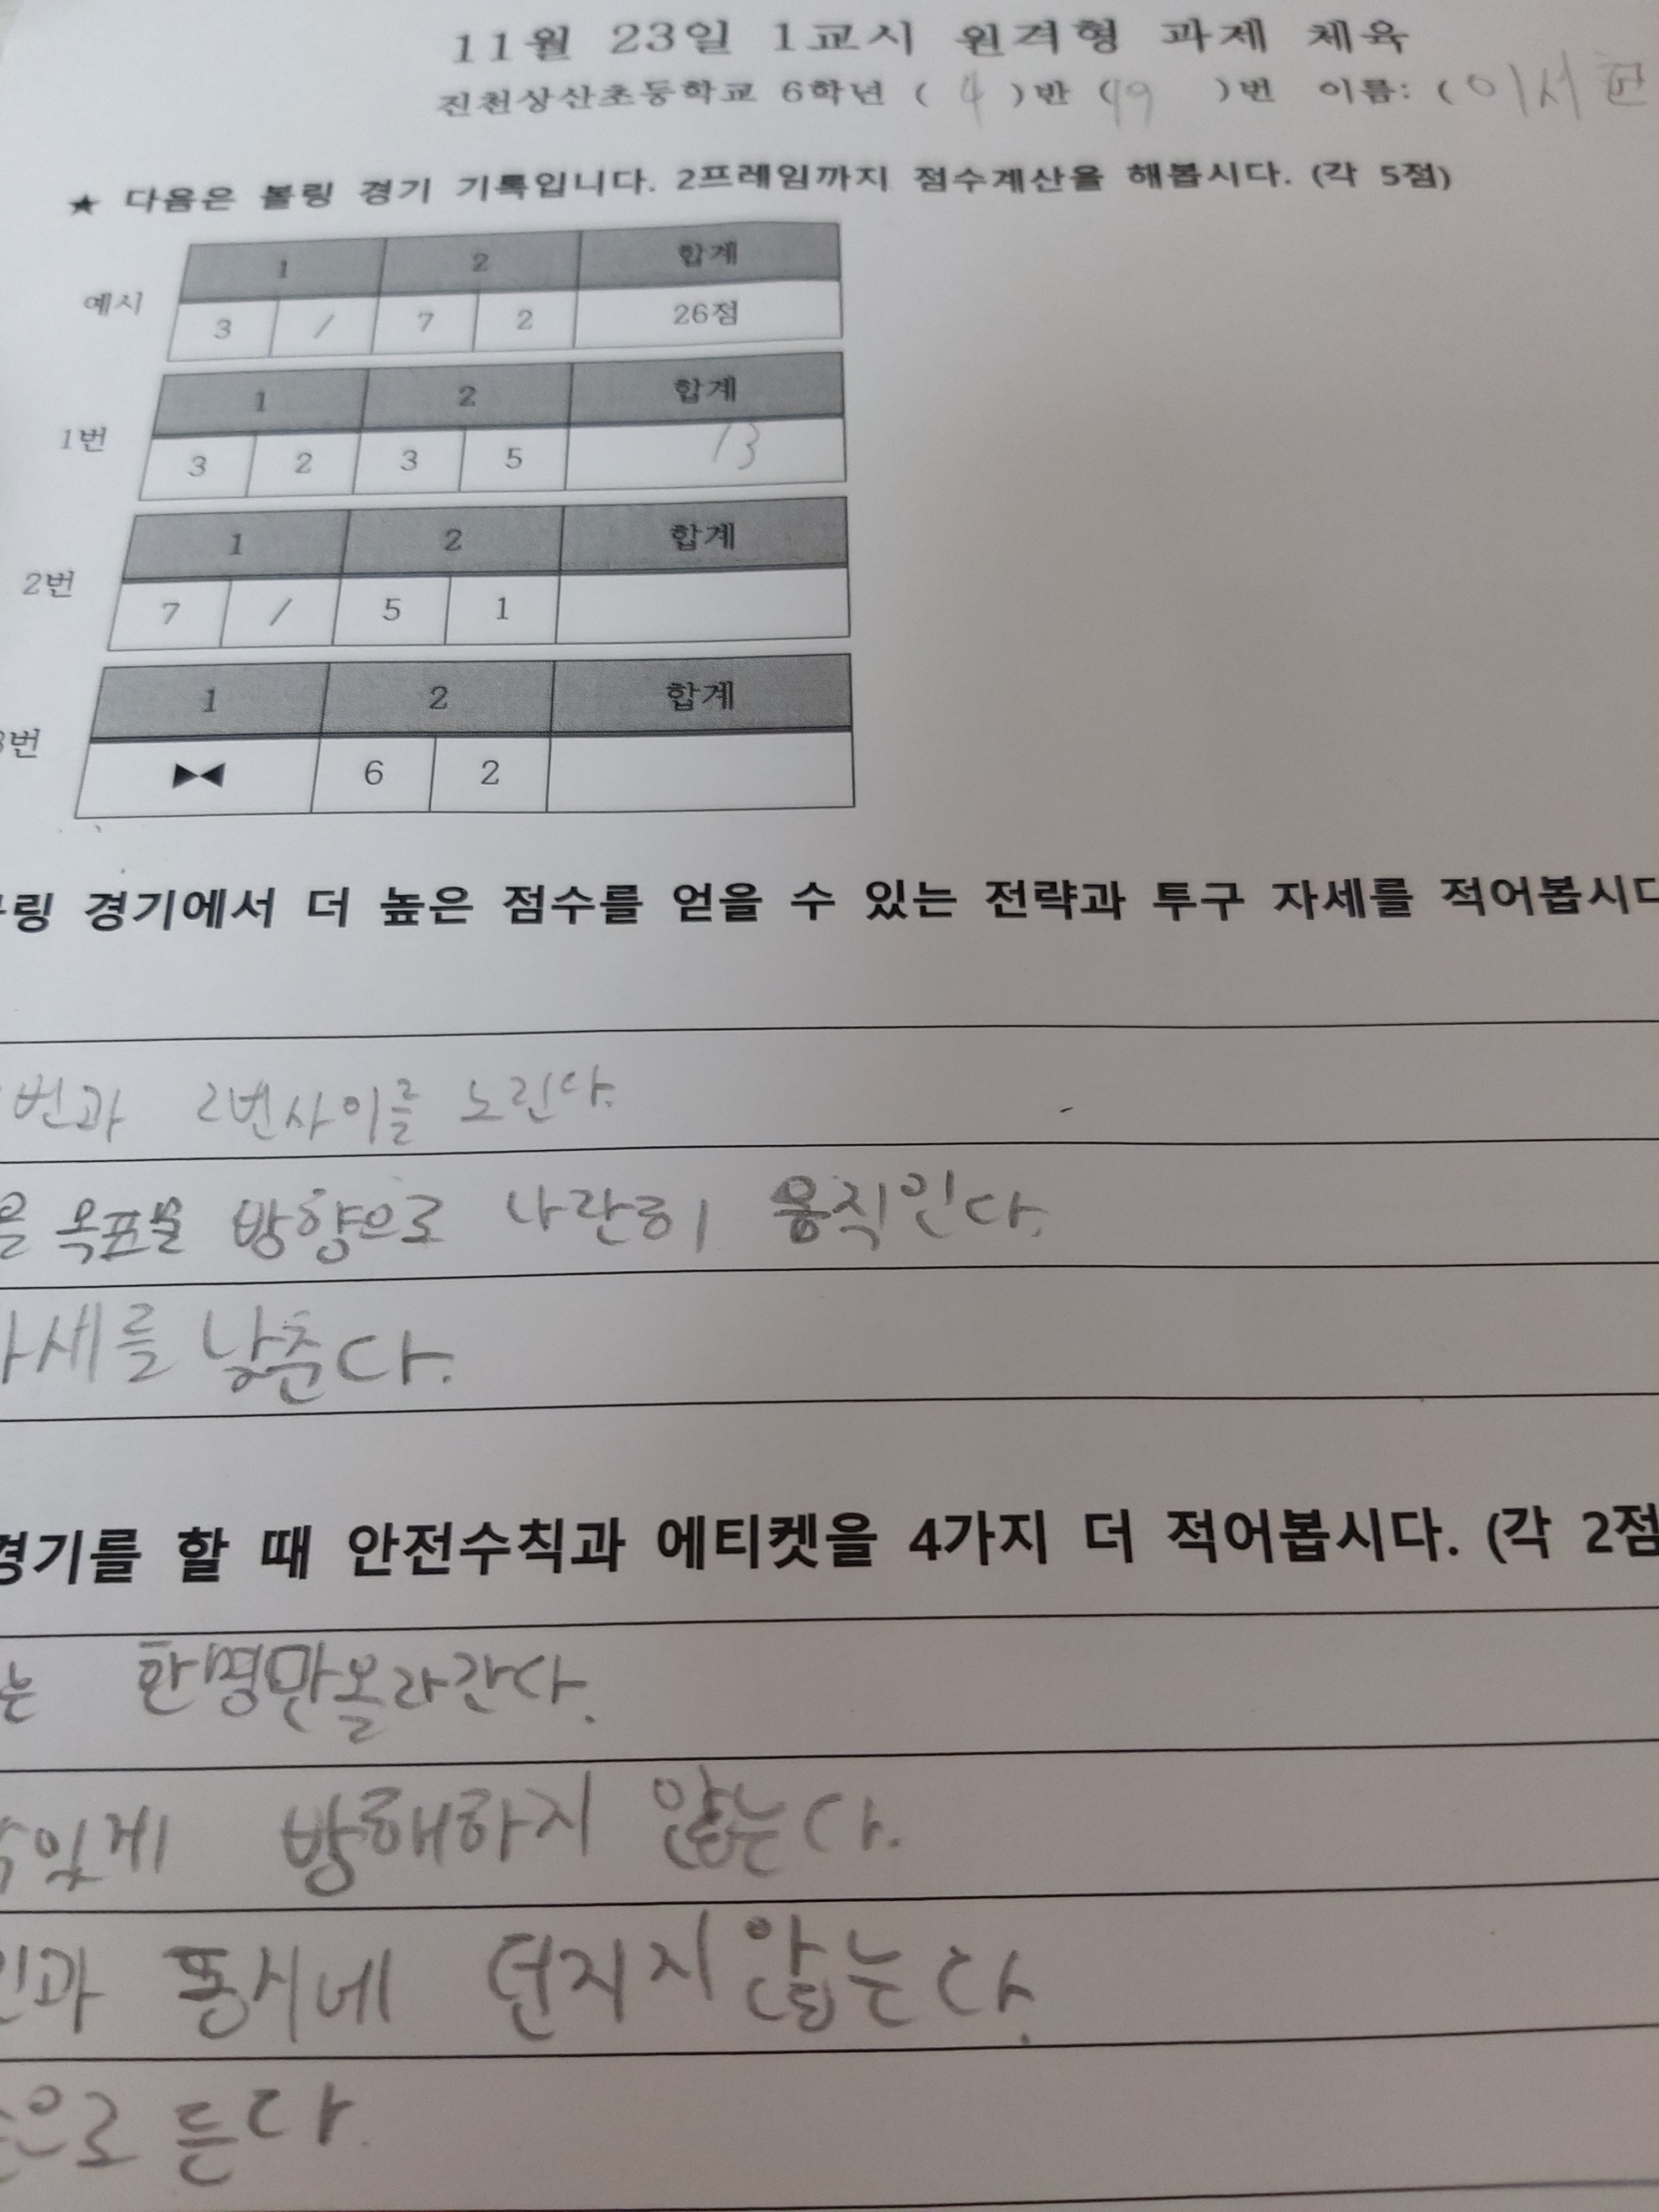 11월 23일 1교시 원격형 과제 체육
진천상산초등학교 6학년 ( 4 )반 (19 )번 이름: ( 이서
★ 다음은 볼링 경기 기록입니다. 2프레임까지 점수계산을 해봅시다. (각 5점)
1 2 합계
예시 3 / 7 2 26점
1 2 합계
1번 3 2 3 5 13
1 2 합계
2번 7 / 5 1
1 2 합계
번 ▶◀ 6 2
링 경기에서 더 높은 점수를 얻을 수 있는 전략과 투구 자세를 적어봅시다
번과 2번사이를 노린다.
을 목표물 방향으로 나란히 움직인다.
세를 낮춘다.
경기를 할 때 안전수칙과 에티켓을 4가지 더 적어봅시다. (각 2점
는 한명만올라간다.
있게 방해하지 않는다.
과 동시네 던지지 않는다.
으로 든다.